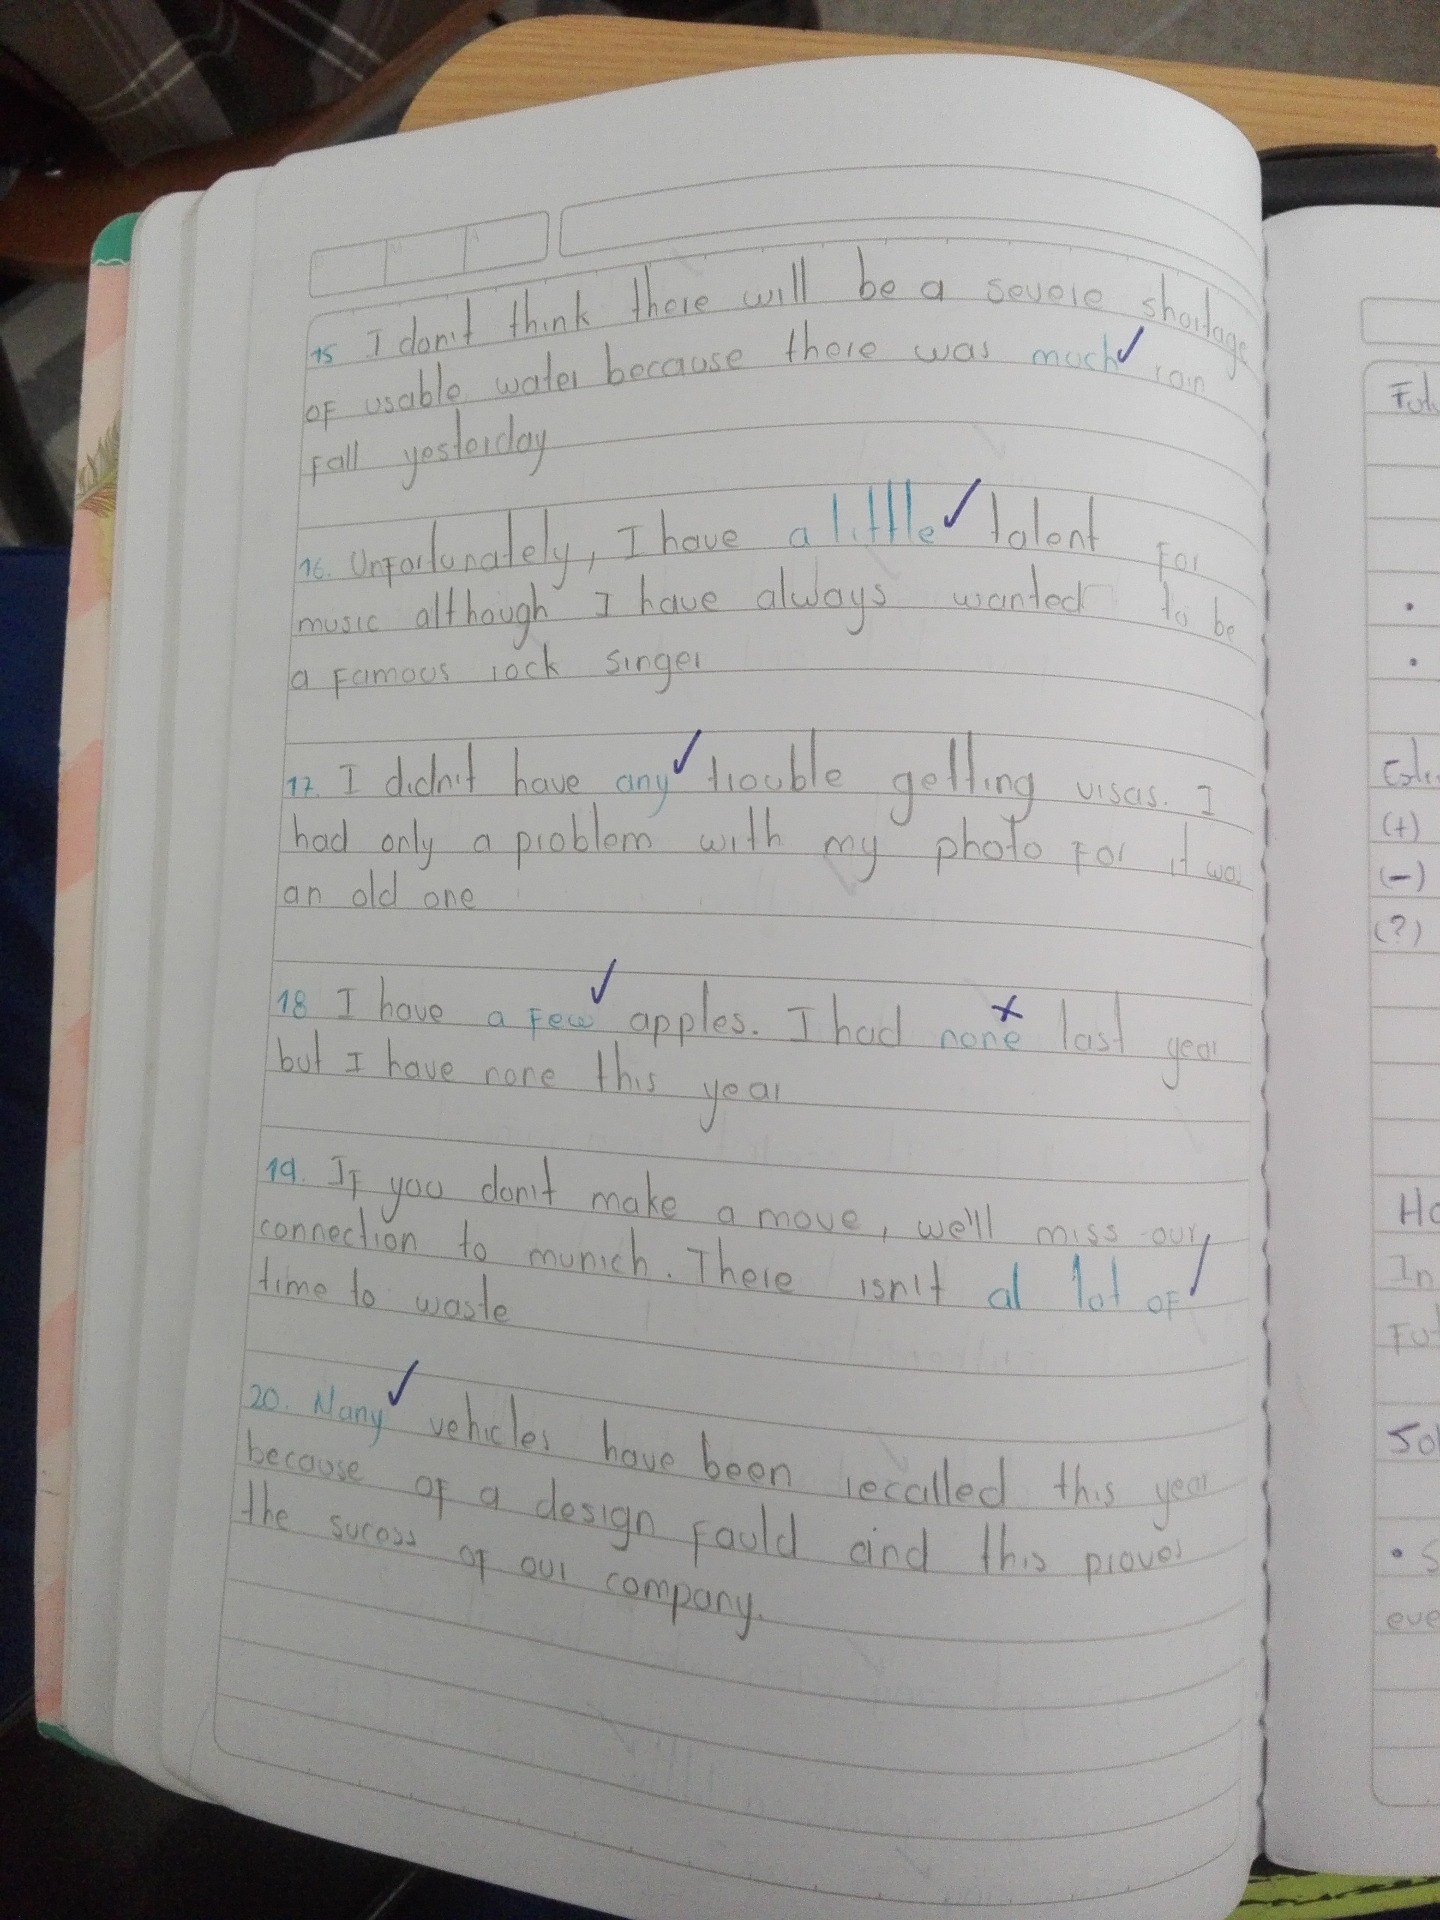 15 I don't think there will be a severe shortage
of usable water because there was much rain
fall yesterday
16. Unfortunately, I have a little talent for
music although I have always wanted to be
a famous rock singer
17. I didn't have any trouble getting visas. I
had only a problem with my photo for it was
an old one
18 I have a few apples. I had none last year
but I have none this year
19. If you don't make a move, we'll miss our
connection to munich. There isn't al lot of
time to waste
20. Many vehicles have been recalled this year
because of a design fauld and this proves
the sucess of our company.
(+)
(-)
(?)
In